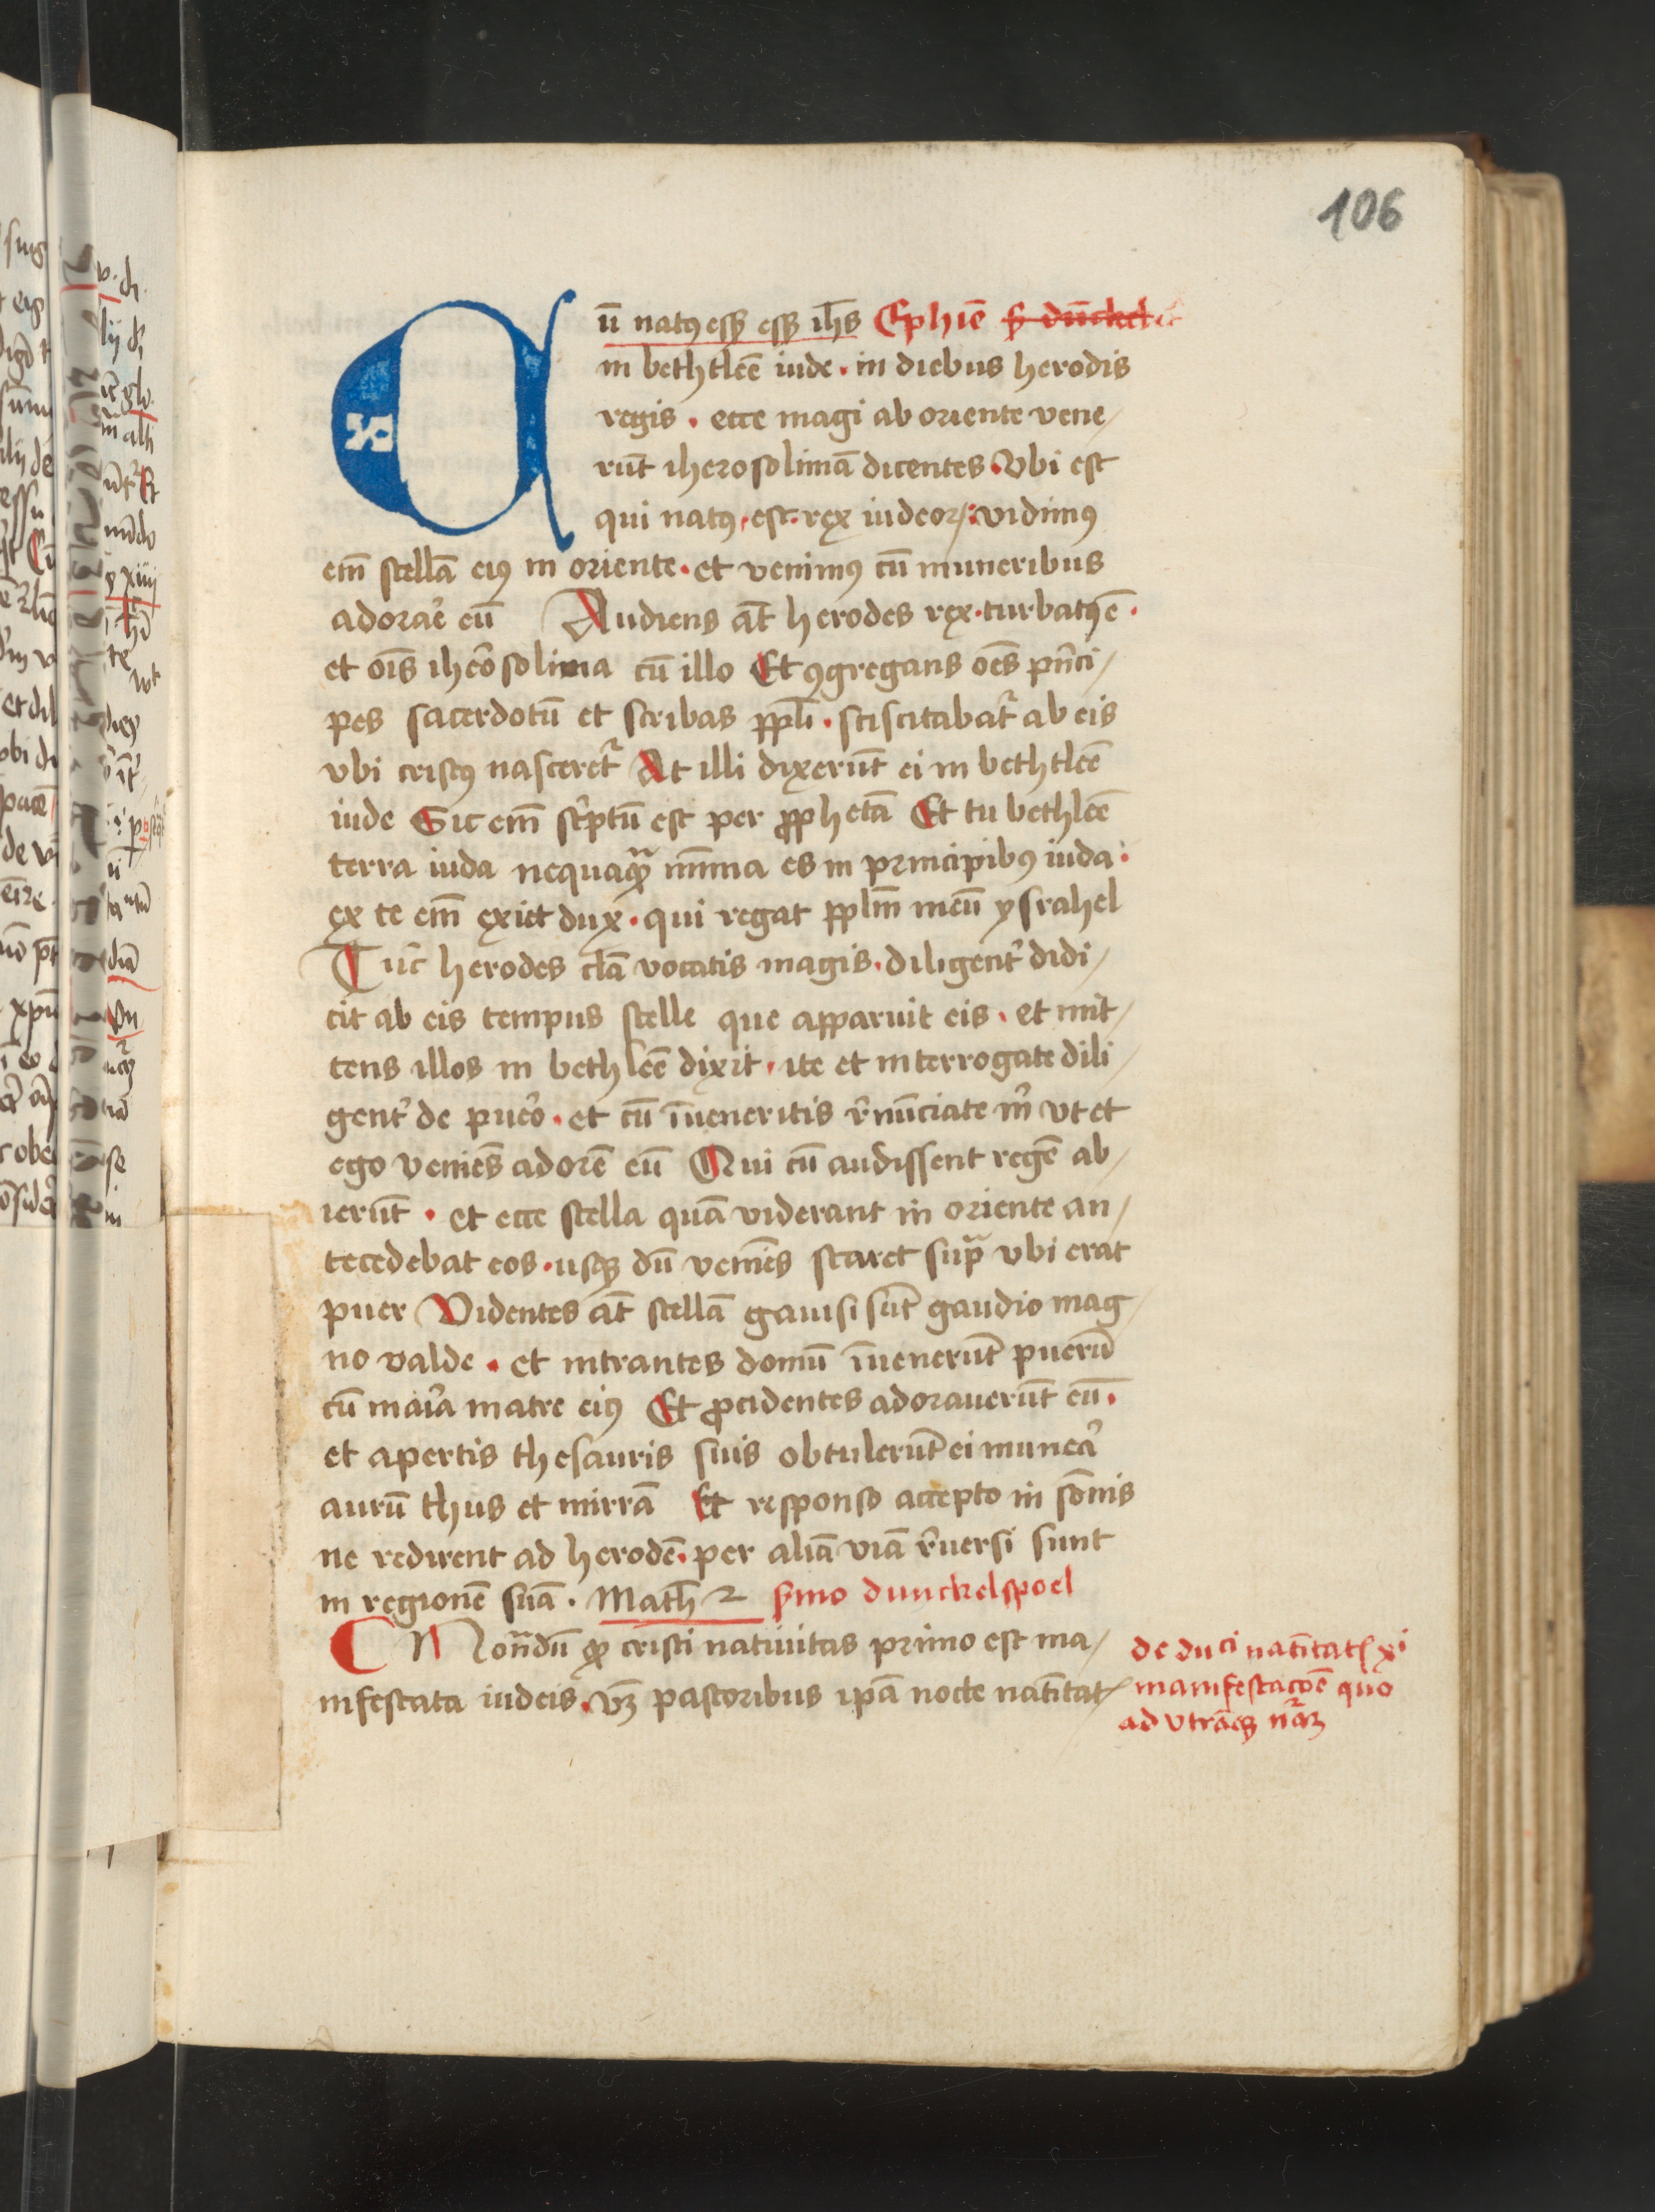 106
Cū natꝰ esꝫ esꝫ ih̄s Ephīe s̄ dūckels
in bethtleē iude · in diebus herodis
regis · ecce magi ab oriente vene/
rūt iherosolimā dicentes · Vbi est
qui natꝰ est · rex iudeoꝝ · vidimꝰ
em̄ stellā eiꝰ in oriente · et venimꝰ cū muneribus
adorare eū Audiens āt herodes rex · turbatꝰ ē ·
et oīs iherosolima cū illo Et ꝯgregans oēs prīci/
pes sacerdotū et scribas ppl̄i · sciscitabat᷑ ab eis
vbi cristꝰ nasceret᷑ At illi dixerūt ei in bethtleē
iude Sic em̄ sc̓ptū est per ꝓphetā Et tu bethleē
terra iuda nequaqͣꝫ mīma es in principibꝰ iuda ·
ex te em̄ exiet dux · qui regat pplm̄ meū ysrahel
Tūc herodes clā vocatis magis · diligent̓ didi/
cit ab eis tempus stelle que apparuit eis · et mit/
tens illos in bethleē dixit · ite et interrogate dili/
gent̓ de puero · et cū īueneritis r̓nūciate m̓ vt et
ego veniēs adorē eū Qui cū audissent regē ab/
ierūt · et ecce stella quā viderant in oriente an/
tecedebat eos · usqꝫ dū veniēs staret supͣ vbi erat
puer Videntes āt stellā gauisi sūt gaudio mag/
no valde · et intrantes domū īuenerūt puerū
cū maria matre eiꝰ Et ꝓcidentes adorauerūt eū ·
et apertis thesauris suis obtulerūt ei munera
aurū thus et mirrā Et responso accepto in sōnis
ne redirent ad herodē · per aliā viā r̓uersi sunt
in regionē suā · Math̄ 2 s̓mo dunckelspoel
Notandū ꝙ cristi natiuitas primo est ma/
nifestata iudeis · vꝫ pastoribus ipā nocte natītatꝭ
de duci natītatꝭ xi
manifestacōe quo
ad vtrāqꝫ nāꝫ